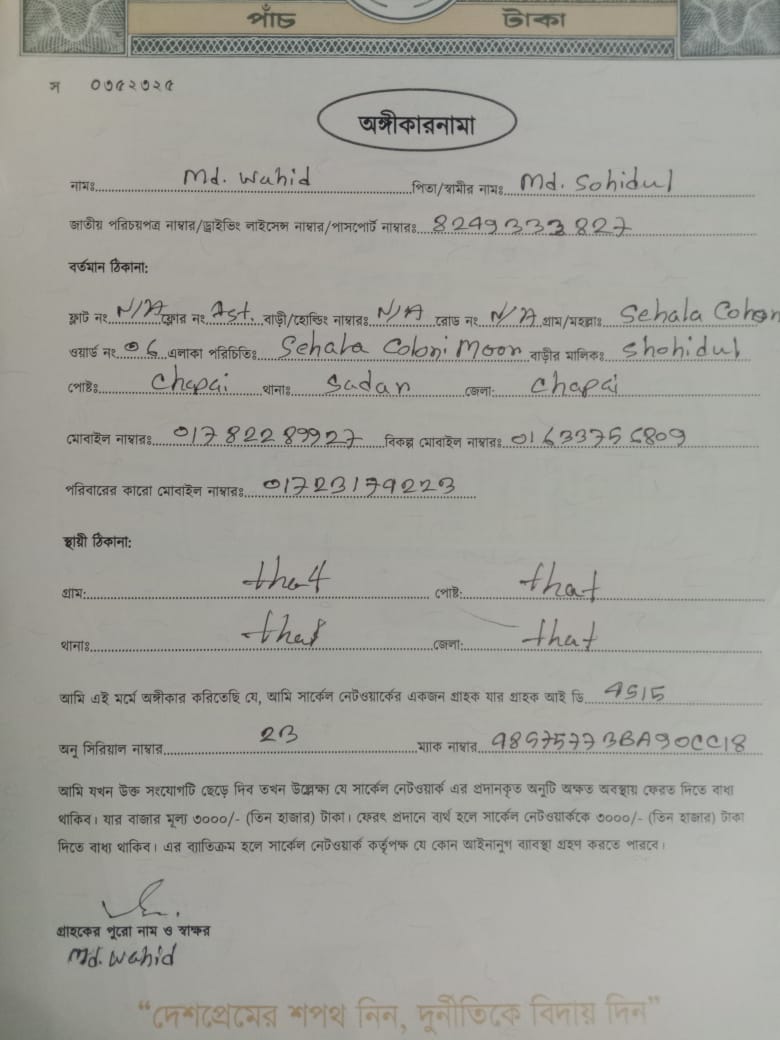 পাঁচ টাকা
স ০৩৫২৩২৫
অঙ্গীকারনামা
নামঃ Md. Wahid পিতা/স্বামীর নামঃ Md. Sohidul
জাতীয় পরিচয়পত্র নাম্বার/ড্রাইভিং লাইসেন্স নাম্বার/পাসপোর্ট নাম্বারঃ 8249333827
বর্তমান ঠিকানা:
ফ্লাট নং N/A ফ্লোর নং 1st. বাড়ী/হোল্ডিং নাম্বারঃ N/A রোড নং N/A গ্রাম/মহল্লাঃ Sehala
ওয়ার্ড নং 06 এলাকা পরিচিতিঃ Sehala Coloni Moon বাড়ীর মালিকঃ Shohidul
পোষ্টঃ Chapai থানাঃ Sadar জেলা: Chapai
মোবাইল নাম্বারঃ 01782289927 বিকল্প মোবাইল নাম্বারঃ 01633756809
পরিবারের কারো মোবাইল নাম্বারঃ 01723179223
স্থায়ী ঠিকানা:
গ্রাম: that পোষ্ট: that
থানাঃ that জেলা: that
আমি এই মর্মে অঙ্গীকার করিতেছি যে, আমি সার্কেল নেটওয়ার্কের একজন গ্রাহক যার গ্রাহক আই ডি 4515
অনু সিরিয়াল নাম্বার 23 ম্যাক নাম্বার 98575773BA90CC18
আমি যখন উক্ত সংযোগটি ছেড়ে দিব তখন উল্লেক্ষ্য যে সার্কেল নেটওয়ার্ক এর প্রদানকৃত অনুটি অক্ষত অবস্থায় ফেরত দিতে বাধ্য
থাকিব। যার বাজার মূল্য ৩০০০/- (তিন হাজার) টাকা। ফেরৎ প্রদানে ব্যর্থ হলে সার্কেল নেটওয়ার্ককে ৩০০০/- (তিন হাজার) টাকা
দিতে বাধ্য থাকিব। এর ব্যতিক্রম হলে সার্কেল নেটওয়ার্ক কর্তৃপক্ষ যে কোন আইনানুগ ব্যাবস্থা গ্রহণ করতে পারবে।
গ্রাহকের পুরো নাম ও স্বাক্ষর
Md. Wahid
“দেশপ্রেমের শপথ নিন, দুর্নীতিকে বিদায় দিন”